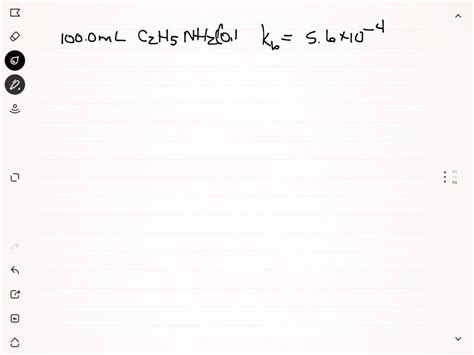 100.0mL C2H5NH2(0.1 Kb = 5.6×10⁻⁴
2/2